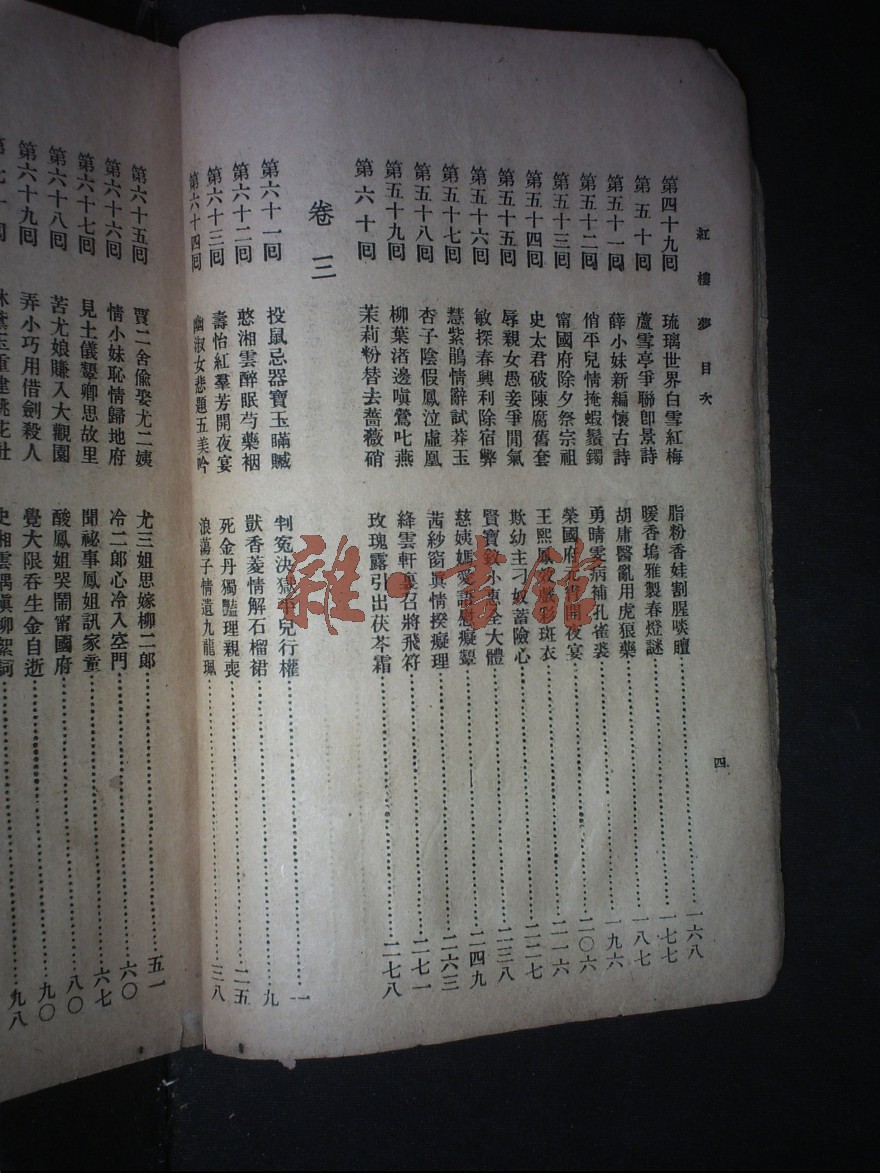 紅樓夢目次
四
第四十九回 琉璃世界白雪紅梅 脂粉香娃割腥啖羶 一六八
第五十回 蘆雪亭爭聯卽景詩 暖香塢雅製春燈謎 一七七
第五十一回 薛小妹新編懷古詩 胡庸醫亂用虎狼藥 一八七
第五十二回 俏平兒情掩蝦鬚鐲 勇晴雯病補孔雀裘 一九六
第五十三回 甯國府除夕祭宗祖 榮國府元宵開夜宴 二〇六
第五十四回 史太君破陳腐舊套 王熙鳳效戲彩斑衣 二一六
第五十五回 辱親女愚妾爭閒氣 欺幼主刁奴蓄險心 二二七
第五十六回 敏探春興利除宿弊 賢寶釵小惠全大體 二三八
第五十七回 慧紫鵑情辭試莽玉 慈姨媽愛語慰癡顰 二四九
第五十八回 杏子陰假鳳泣虛凰 茜紗窗眞情揆癡理 二六三
第五十九回 柳葉渚邊嗔鶯叱燕 絳雲軒裏召將飛符 二七一
第六十回 茉莉粉替去薔薇硝 玫瑰露引出茯苓霜 二七八
卷三
第六十一回 投鼠忌器寶玉瞞贓 判冤決獄平兒行權 一
第六十二回 憨湘雲醉眠芍藥裀 獃香菱情解石榴裙 九
第六十三回 壽怡紅羣芳開夜宴 死金丹獨豔理親喪 二五
第六十四回 幽淑女悲題五美吟 浪蕩子情遺九龍珮 三八
第六十五回 賈二舍偸娶尤二姨 尤三姐思嫁柳二郎 五一
第六十六回 情小妹恥情歸地府 冷二郎心冷入空門 六〇
第六十七回 見土儀顰卿思故里 聞祕事鳳姐訊家童 六七
第六十八回 苦尤娘賺入大觀園 酸鳳姐哭鬧甯國府 八〇
第六十九回 弄小巧用借劍殺人 覺大限吞生金自逝 九〇
第七十回 林黛玉重建桃花社 史湘雲偶塡柳絮詞 九八
雜·書館